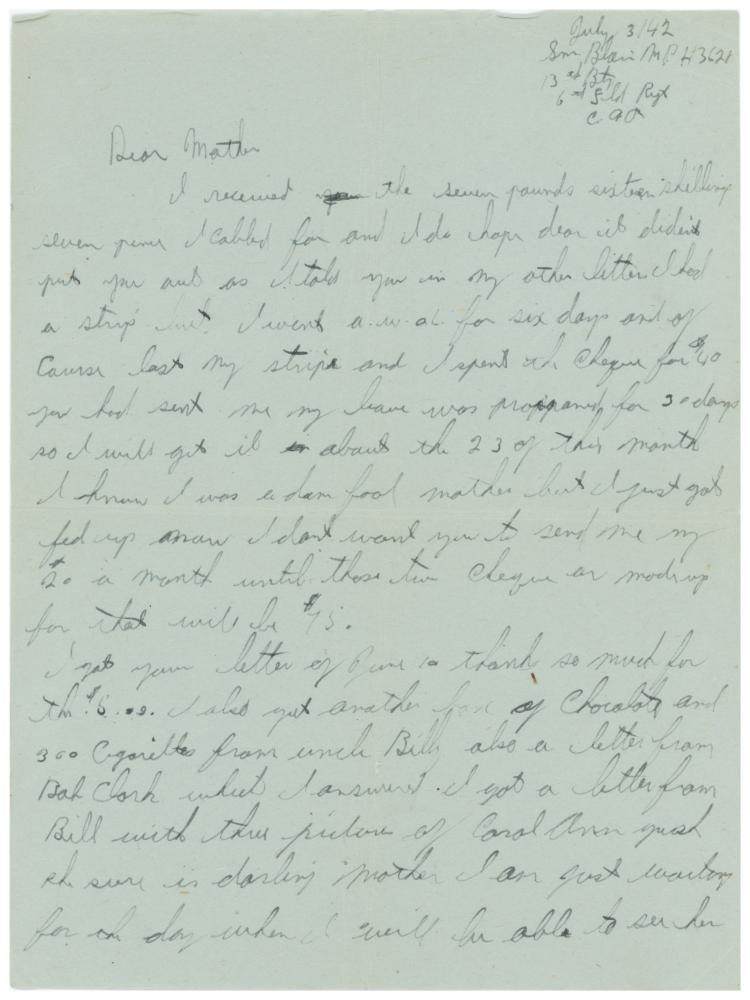 July 3/42
Gnr Blair M P H3621
13th Bty
6th Field Rgt
C A O
Dear Mother
I received the seven pounds sixteen shilling
seven penc I cabled for and I do hope dear it dident
put you out as I told you in my other letter I had
a strip but I went a.w.ol. for six days and of
Course lost my stripe and I spent th Cheque for $40
you had sent me my leave was for 30 days
so I will get it about the 23 of this month
I know I was a dam fool mother but I just got
fed up now I dont want you to send me my
$20 a month until those two Cheque ar made up
for that will be $75.
I got your letter of June 10 thank so much for
th $5.00. I also got another box of Chocolate and
300 Cigarettes from uncle Bill also a letter from
Bob Clark which I answered. I got a letter from
Bill with three picture of Carol Ann gosh
she sure is darling Mother I am just waiting
for th day when I will be able to see her